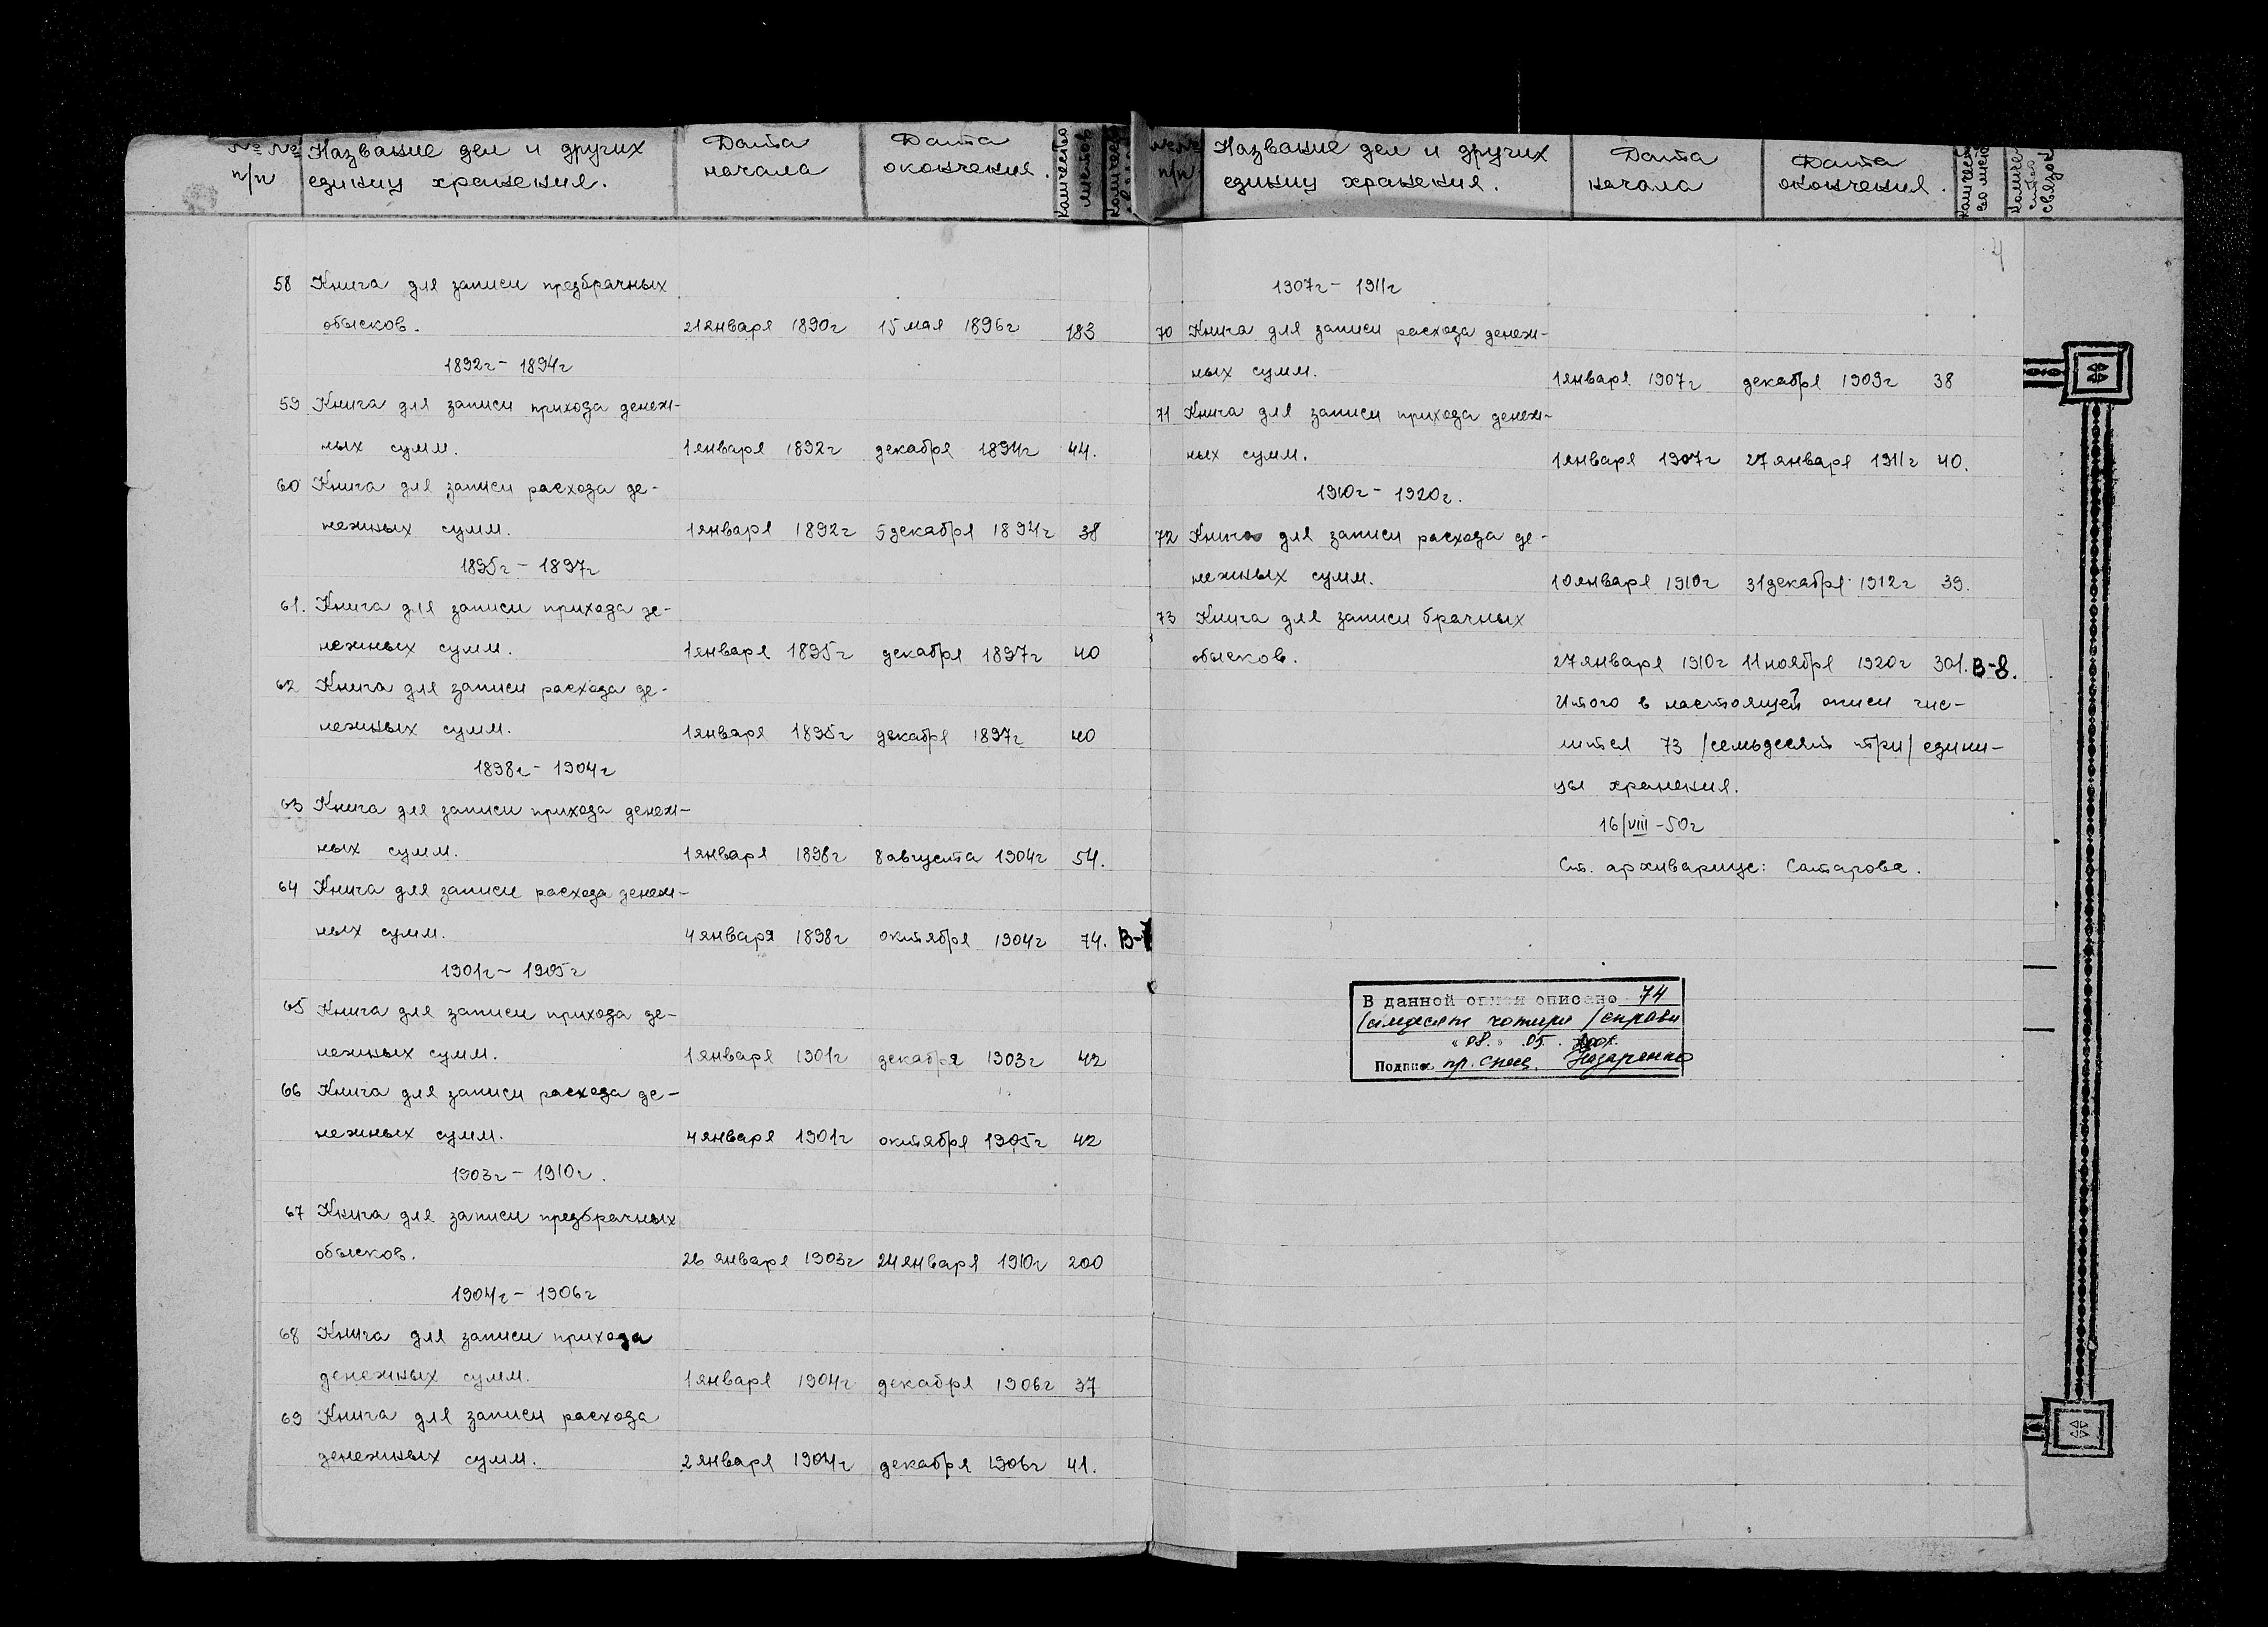 № №
п/п
Название дел и других
единиц хранения.
Дата
начала
Дата
окончения.
Количество
листов
58 Книга для записи предбрачных
обысков. 21 января 1890г 15 мая 1896г 183
1892г - 1894г
59 Книга для записи прихода денеж-
ных сумм. 1 января 1892г декабря 1894г 44.
60 Книга для записи расхода де-
нежных сумм. 1 января 1892г 5 декабря 1894г 38
1895г - 1897г
61. Книга для записи прихода де-
нежных сумм. 1 января 1895г декабря 1897г 40
62 Книга для записи расхода де-
нежных сумм. 1 января 1895г декабря 1897г 40
1898г - 1904г
63 Книга для записи прихода денеж-
ных сумм. 1 января 1898г 8 августа 1904г 54.
64 Книга для записи расхода денеж-
ных сумм. 4 января 1898г октября 1904г 74. В-7
1901г - 1905г
65 Книга для записи прихода де-
нежных сумм. 1 января 1901г декабря 1903г 42
66 Книга для записи расхода де-
нежных сумм. 4 января 1901г октября 1905г 42
1903г - 1910г.
67 Книга для записи предбрачных
обысков. 26 января 1903г 24 января 1910г 200
1904г - 1906г
68 Книга для записи прихода
денежных сумм. 1 января 1904г декабря 1906г 37
69 Книга для записи расхода
денежных сумм. 2 января 1904г декабря 1906г 41.
№ №
п/п
Название дел и других
единиц хранения.
Дата
начала
Дата
окончения.
Количест
во листо
Количе-
ство
связок
4
1907г - 1911г
70 Книга для записи расхода денеж-
ных сумм. 1 января 1907г декабря 1909г 38
71 Книга для записи прихода денеж-
ных сумм. 1 января 1907г 27 января 1911г 40.
1910г - 1920г.
72 Книга для записи расхода де-
нежных сумм. 10 января 1910г 31 декабря 1912г 39.
73 Книга для записи брачных
обысков. 27 января 1910г 11 ноября 1920г 301. В-8.
Итого в настоящей описи чис-
лится 73 /семьдесят три/ едини-
цы хранения.
16/VIII-50г
Ст. архивариус: Сатарова.
В данной описи описано 74
/сімдесят чотири / справи
«08.» 05.
Подпись пр. спец. Назаренко